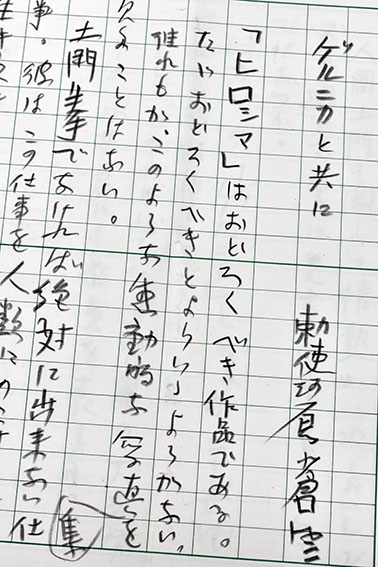 ゲルニカと共に 勅使河原蒼風
「ヒロシマ」はおどろくべき作品である。
ただおどろくべきとよりいいようがない。
誰れもが、このような動的な写真を
ことはない。
土門拳でなければ絶対に出来ない仕
事。彼はこの仕事を人類に
集